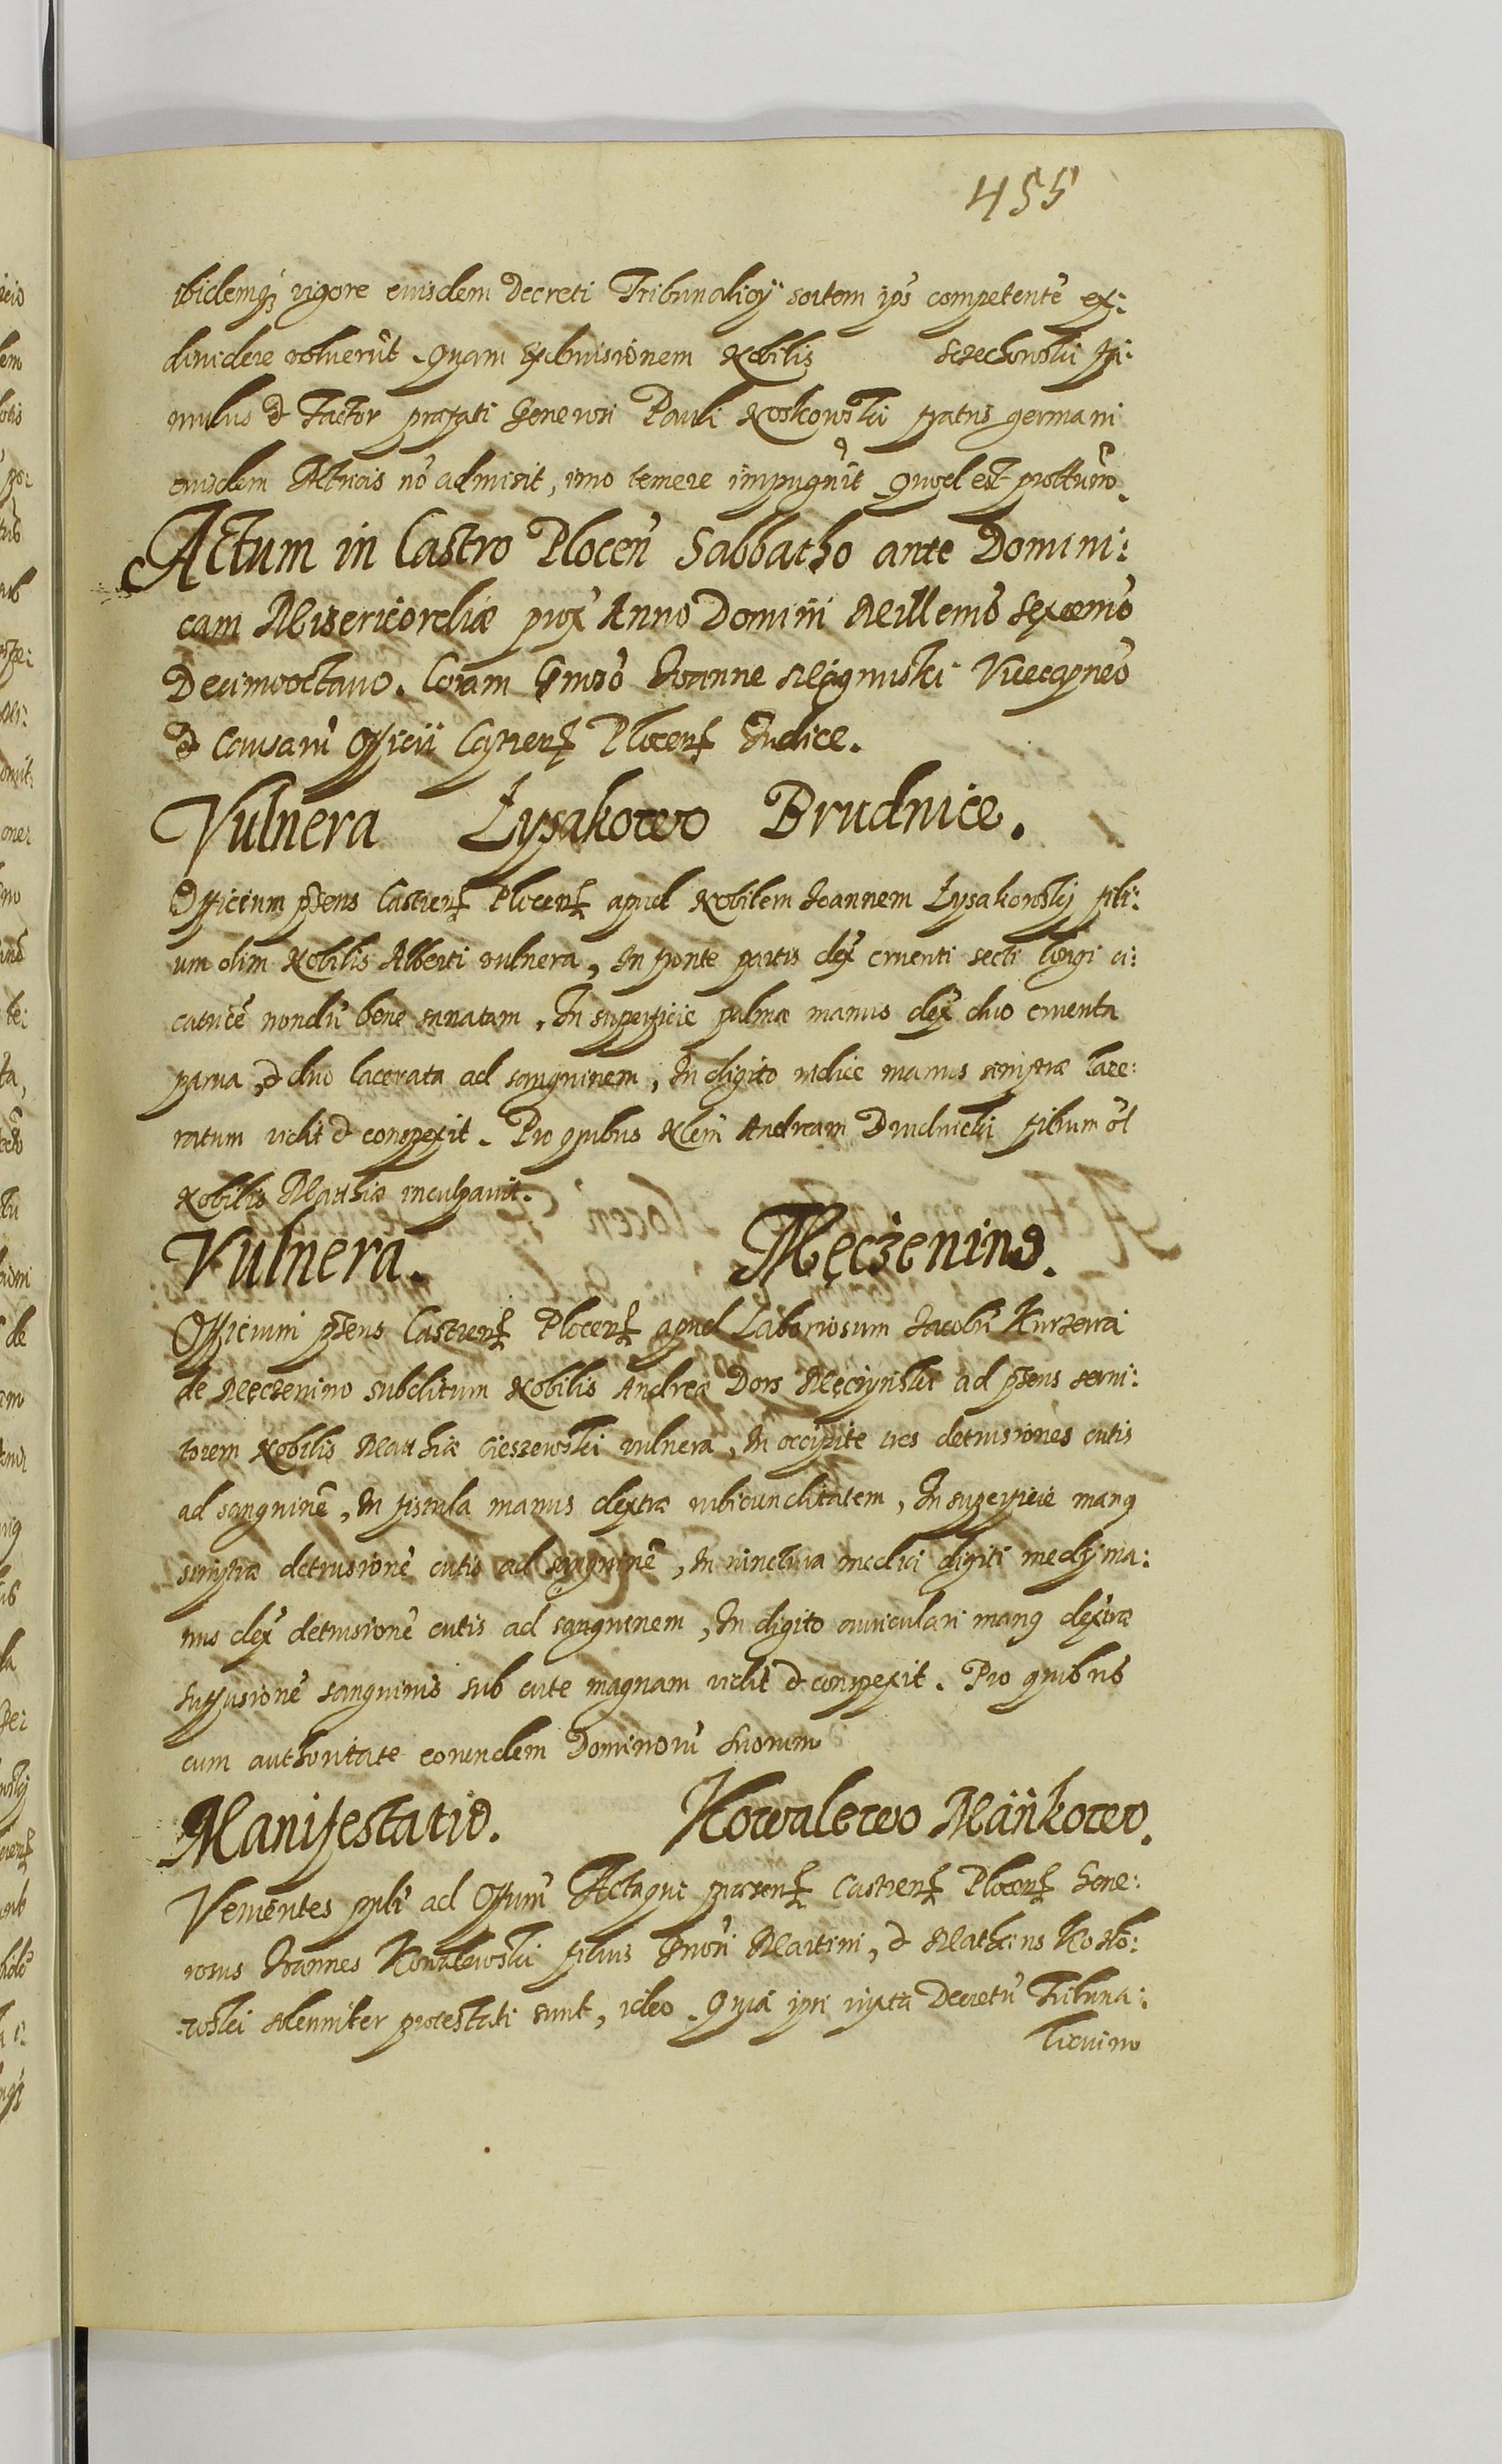 455
ibidemq₃ vigore eiusdem Decreti Tribunalicij sortem ips competentē ex:
dividere voluerūt. Quam Exdiuisionem Nobilis Szrechowski Fa:
mulus et Factor præfati Generosi Pauli Koskowski fratris germani
eiusdem Actricis nō admisit, imo temere impugnūit. Quod est prottūm.
Actum in Castro Plocen̄ Sabbatho ante Domini:
cam Misericordiæ prox̄ Anno Domini Millemō Sexcemō
Decimooctauo. Coram Gnosō Joanne Magnuski Vicecapneō
et Causarū Officii Castren̄ Plocen̄ Judice.
Vulnera Łysakowo Brudnice.
Officium pñs Castren̄ Plocen̄ apud Nobilem Joannem Łysakowskij fili:
um olim Nobilis Alberti vulnera, In fronte partis dex̄ cruenti secti longi ci:
catricē nondū bene sanatam, In superficie palmæ manus dex̄ duo cruenta
parua, et duo lacerata ad sanguinem, In digito indice manus sinistræ lace:
ratum vidit et conspexit. Pro quibus Nlem̄ Andream Drudnicki filium ol̄
Nobilis Matthiæ inculpauit.
Vulnera. Męczenino.
Officium pñs Castren̄ Plocen̄ apud Laboriosum Jacobū Kurzewa
de Męczenino subditum Nobilis Andreæ Dors Męczynski ad pñs serui:
torem Nobilis Matthiæ Cieszewski vulnera, In occipite tres detrusiones cutis
ad sanguinē, In fistula manus dextræ rubicunditatem, In superficie manus
sinistræ detrusionē cutis ad sanguinē, In iunctura medici digiti medij ma:
nus dex̄ detrusionē cutis ad sanguinem, In digito auriculari manus dextræ
suffusionē sanguinis sub cute magnam vidit et conspexit. Pro quibus
cum authoritate eorundem Dominorū Suorum
Manifestatio. Kowalewo Mańkowo.
Venientes psnlr ad Offum̄ Actaque præsen̄ Castren̄ Plocen̄ Gene:
rosus Joannes Kowalewski filius Gnosi Martini, et Matheus
solemniter protestati sunt, ideo. Quia ipsi iuxta Decretū Tribuna:
licium